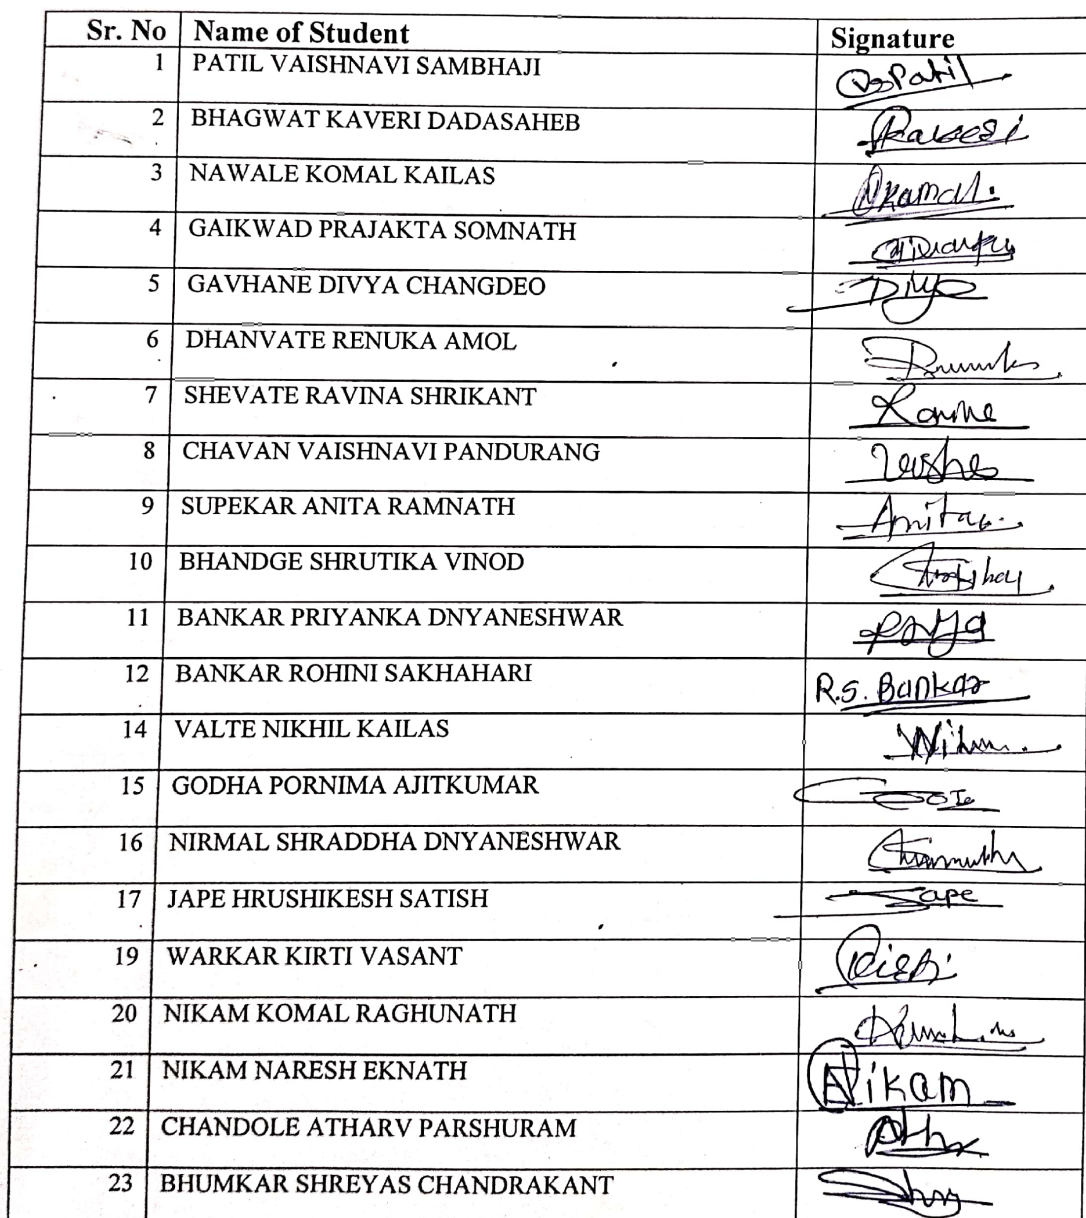 Sr. No Name of Student Signature
1 PATIL VAISHNAVI SAMBHAJI Patil
2 BHAGWAT KAVERI DADASAHEB Kaveri
3 NAWALE KOMAL KAILAS
4 GAIKWAD PRAJAKTA SOMNATH
5 GAVHANE DIVYA CHANGDEO
6 DHANVATE RENUKA AMOL
7 SHEVATE RAVINA SHRIKANT
8 CHAVAN VAISHNAVI PANDURANG
9 SUPEKAR ANITA RAMNATH Anita
10 BHANDGE SHRUTIKA VINOD
11 BANKAR PRIYANKA DNYANESHWAR
12 BANKAR ROHINI SAKHAHARI R.S. Bankar
14 VALTE NIKHIL KAILAS
15 GODHA PORNIMA AJITKUMAR
16 NIRMAL SHRADDHA DNYANESHWAR
17 JAPE HRUSHIKESH SATISH Jape
19 WARKAR KIRTI VASANT
20 NIKAM KOMAL RAGHUNATH
21 NIKAM NARESH EKNATH Nikam
22 CHANDOLE ATHARV PARSHURAM
23 BHUMKAR SHREYAS CHANDRAKANT